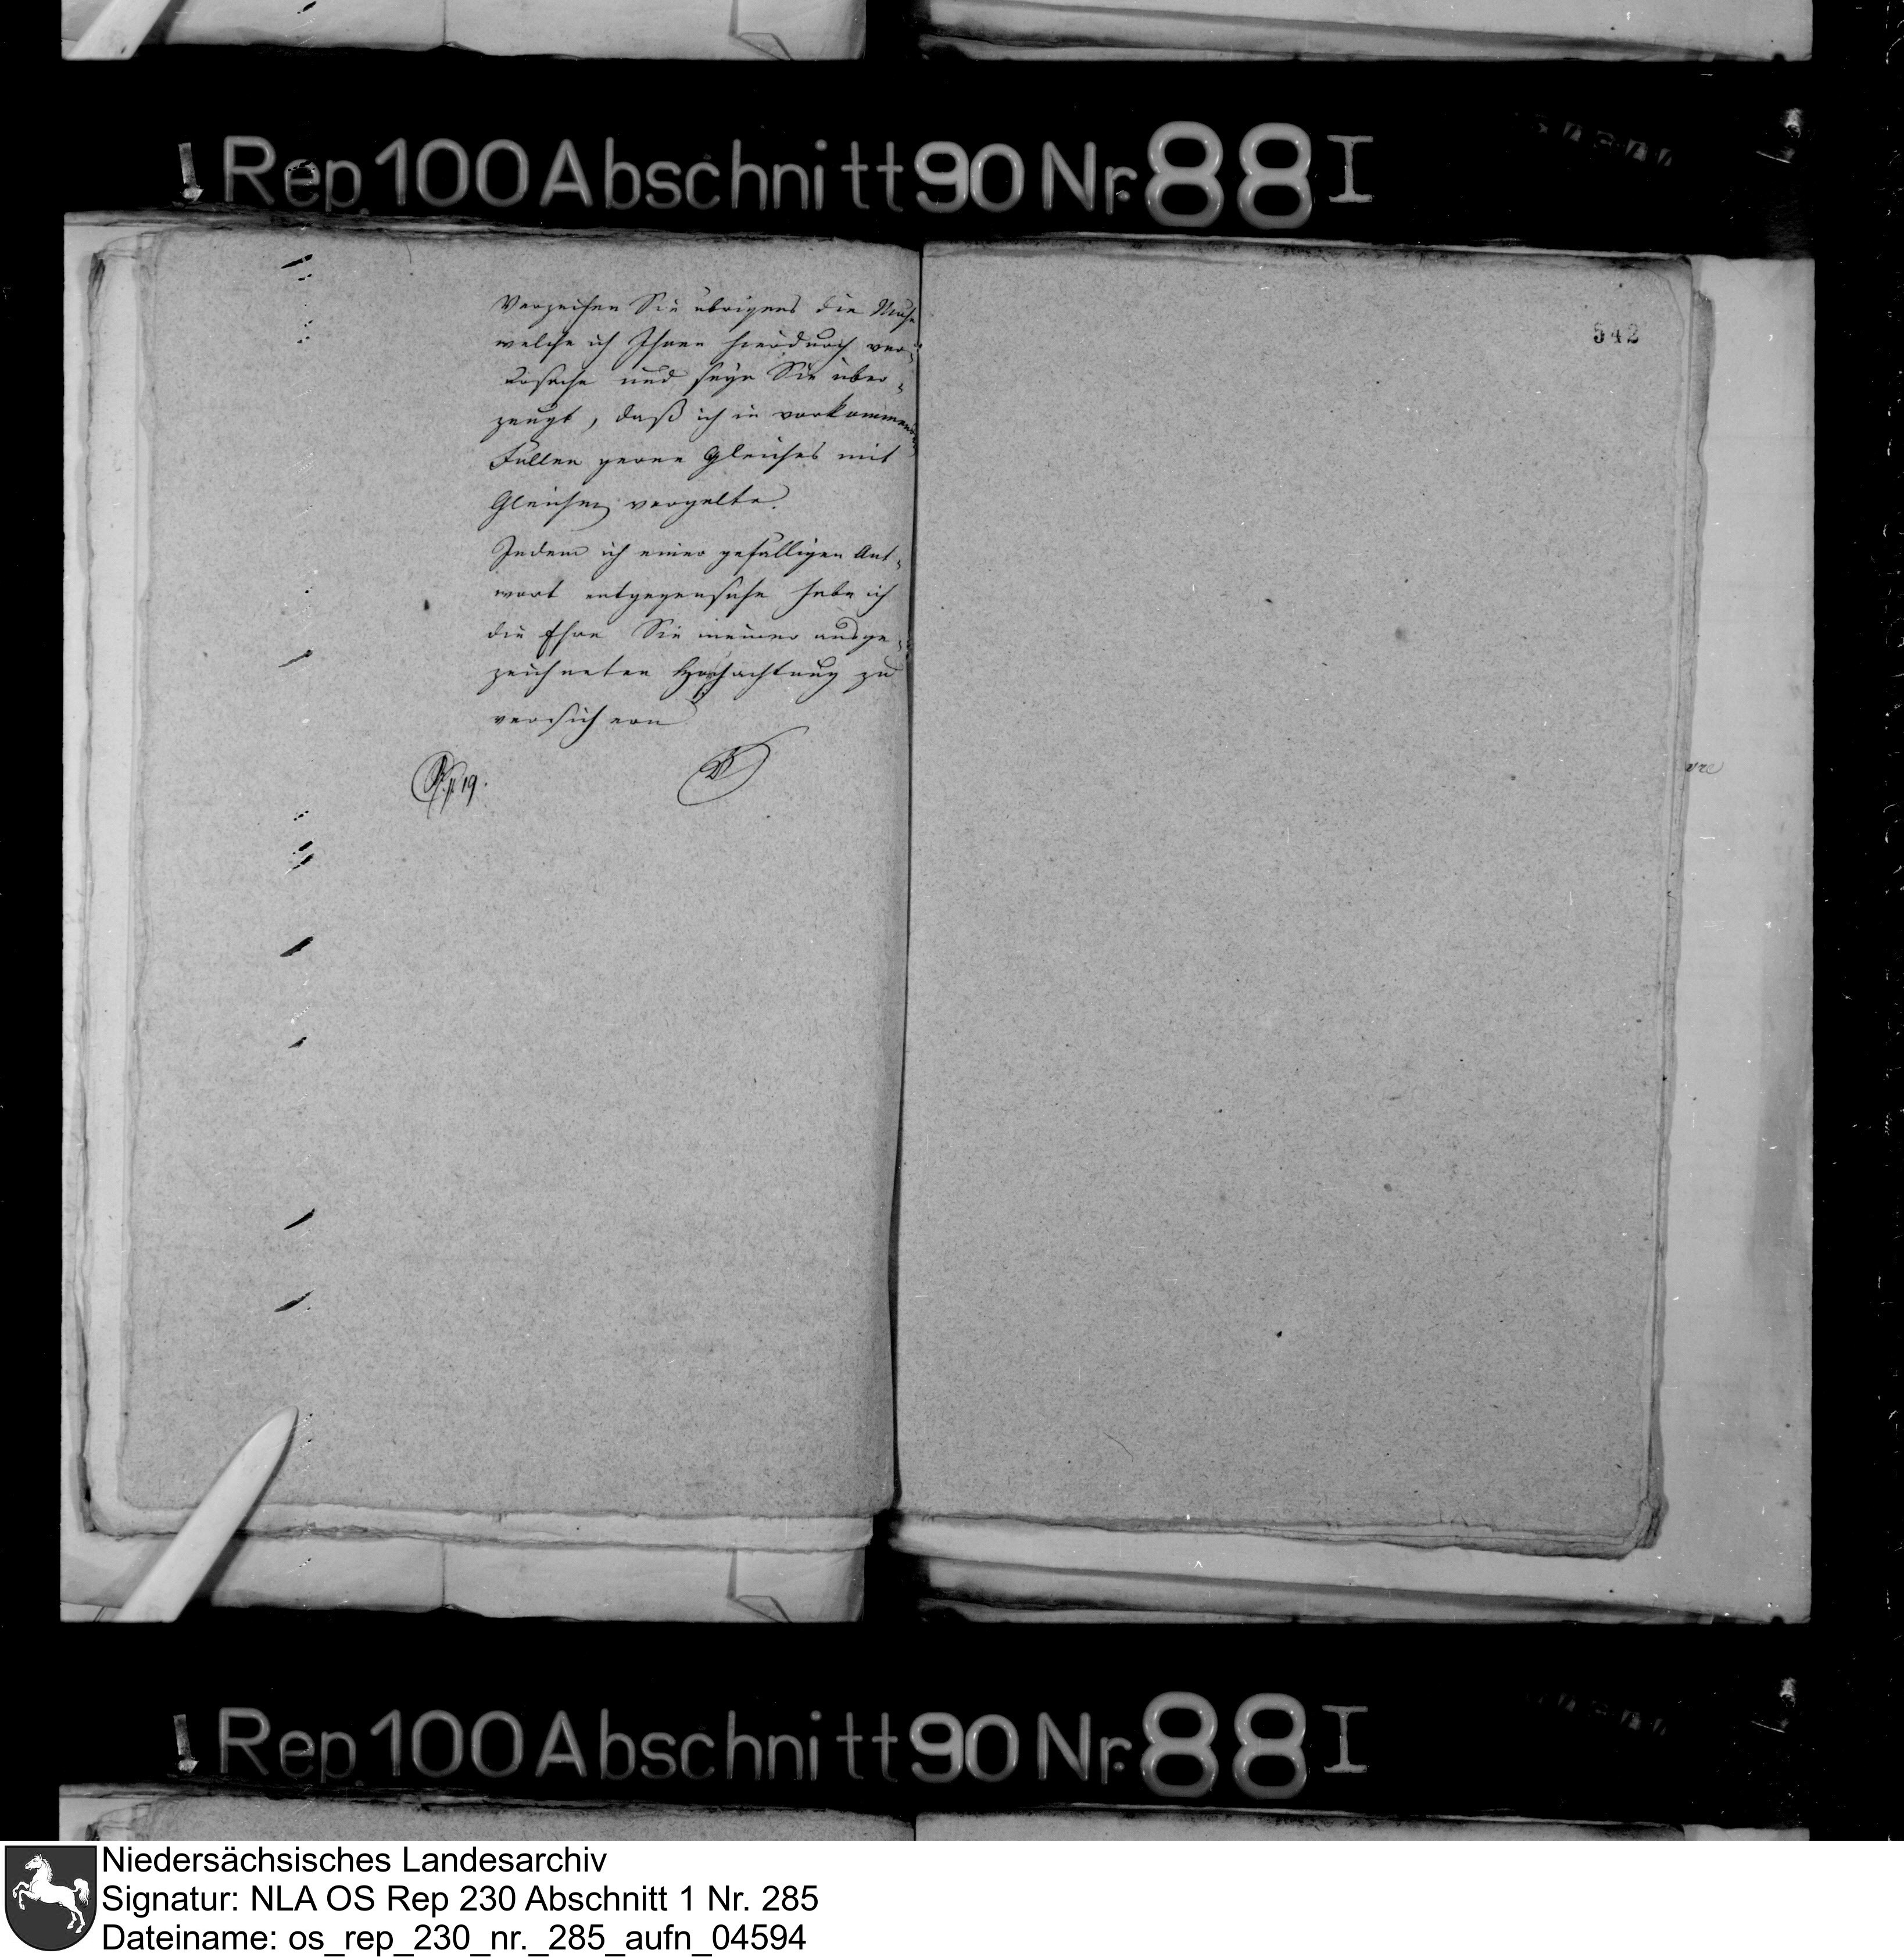 Rep. 100 Abschnitt 90 Nr. 88 I
Verzeihen Sie übrigens die Mühe
welche ich Ihnen hierdurch ver-
ursache und seyn Sie über-
zeugt, daß ich in vorkommenden
Fällen gerne Gleiches mit
Gleichem vergelte.
Indem ich einer gefälligen Ant-
wort entgegensehe habe ich
die Ehre Sie meiner ausge-
zeichneten Hochachtung zu
versichern
19.
542
Rep. 100 Abschnitt 90 Nr. 88 I
Niedersächsisches Landesarchiv
Signatur: NLA OS Rep 230 Abschnitt 1 Nr. 285
Dateiname: os_rep_230_nr._285_aufn_04594